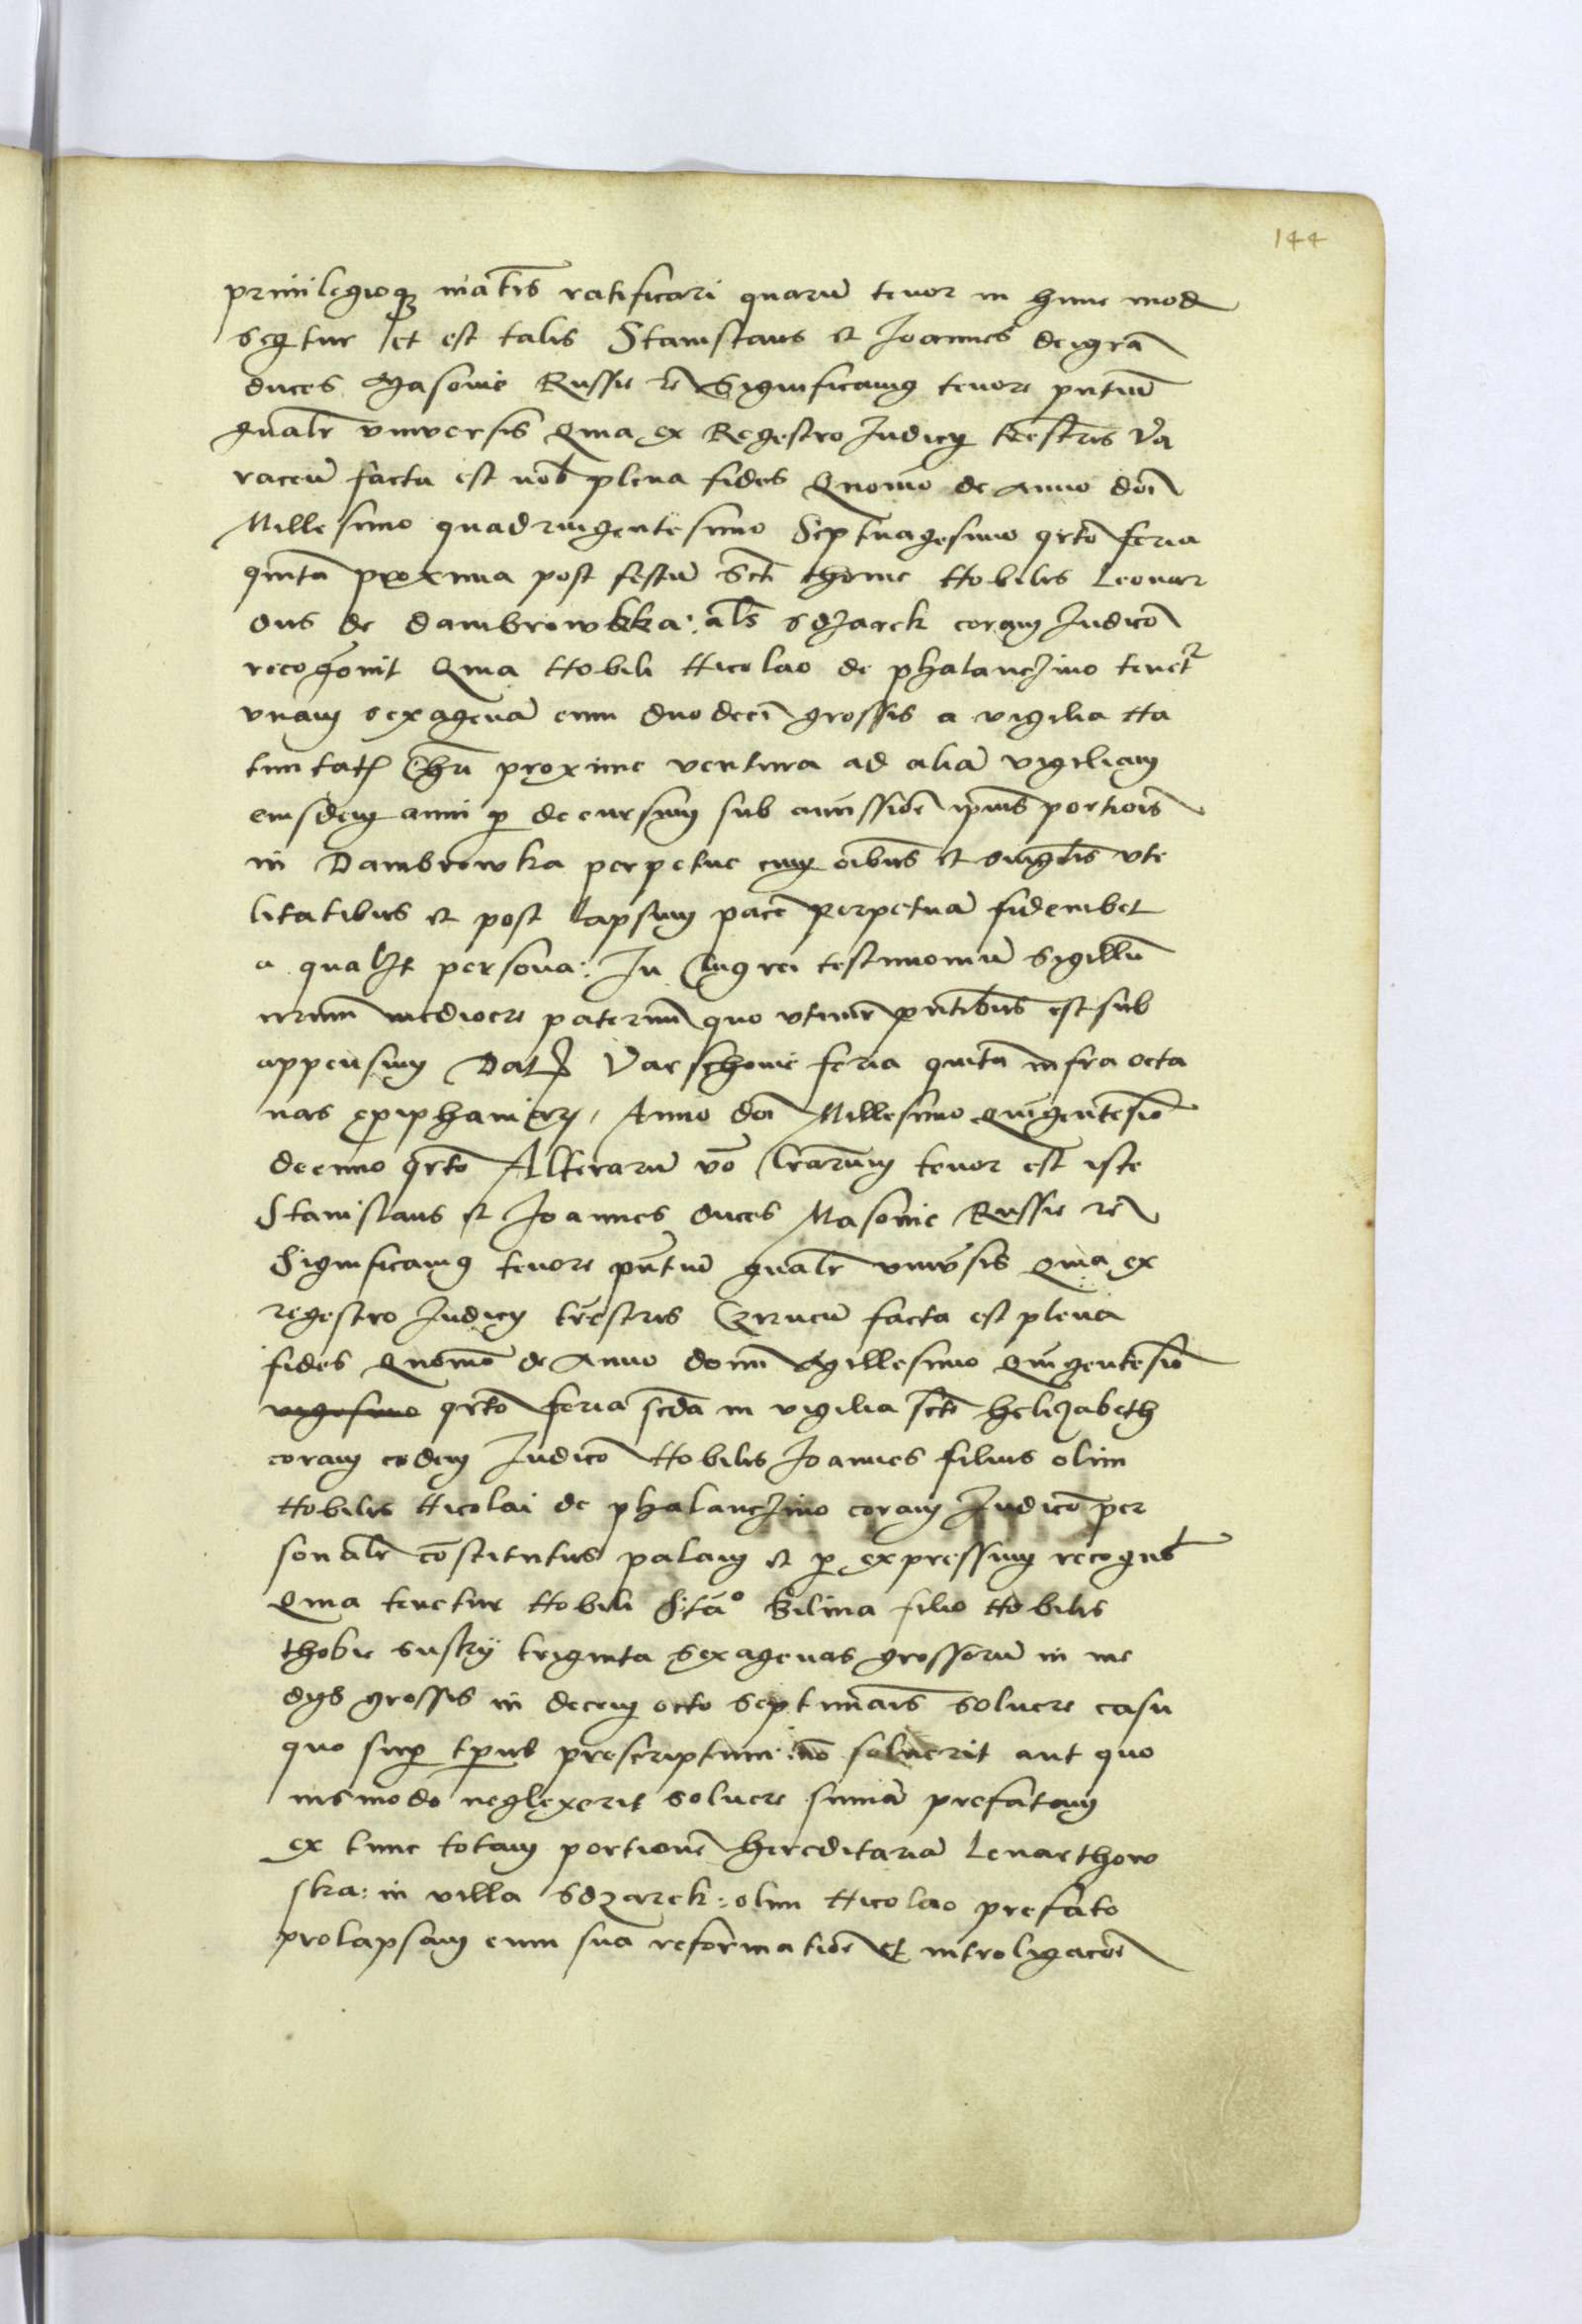 144
privilegioqȝ mãtis ratificari quarũ tenor in hunc mod
seqtur et est talis Stanislaus et Joannes dei grã
duces Masovie Russie rc̃ Significamꝰ tenore pñtium
gñalr̃ vniversis Qma ex Registro Judicij terrestris Va
raceñ facta est nob̃ plena fides Qnomõ de Anno dñi
Millesimo quadringentesimo Septuagesimo qrtõ feria
quinta proxima post festũ Sct̃i thome Nobilis Leonar
dus de dambrowkka: als̃ sdzarek coram Judicõ
recogõvit Qma Nobili Nicolao de phalanczino tenetr
vnam sexagenã cum duodecĩ grossis a vigilia Na
tivitatꝭ Chri proxime ventura ad aliã vigiliam
eiusdem anni ꝑ decursum sub amissiõe ip̃ius portiois
in Dambrowka perpetue cum oĩbus et singulis vti
litatibus et post lapsum pacẽ perpetuã fideiubet
a qualꝫt persona: In Cuiꝰ rei testimoniũ Sigillũ
nr̃um mediocre paternũ quo vtimr̃ pñtibus est sub
appensum Datꝭ Varschovie feria quinta infra octa
vas epiphaniarꝭ, Anno dñi Millesimo Quĩgentesiõ
decimo qrtõ Alterarũ vo Lr̃arum tenor est iste
Stanislaus et Joannes duces Masovie Russie rc̃
Significamꝰ tenore pñtiũ gñalr̃ vnivs̃is Qma ex
regestro Judicij trr̃estris facta est plena
fides Qnomõ de Anno domĩ Millesimo Quĩgentesiõ
vigesimo qrtõ feria scdã in vigilia sctẽ helizabeth
coram eodem Judicõ Nobilis Joannes filius olim
Nobilis Nicolai de phalanczino coram Judicõ per
sonalr̃ cõstitutus palam et ꝑ expressum recognot
Qma tenetur Nobili Stã° Bilina filio Nobilis
thobie suskÿ triginta sexagenas grossorũ in me
dijs grossis in decem octo septimãis solvere casu
quo suꝑ tp̃us prescriptum nõ solverit aut quo
vismodo neglexerit solvere sumã prefatam
ex tunc totam portionẽ hereditariã Lenarthow
ska: in villa sdzarek: olim Nicolao prefato
prolapsam cum sua reformatiõe et introligacõe